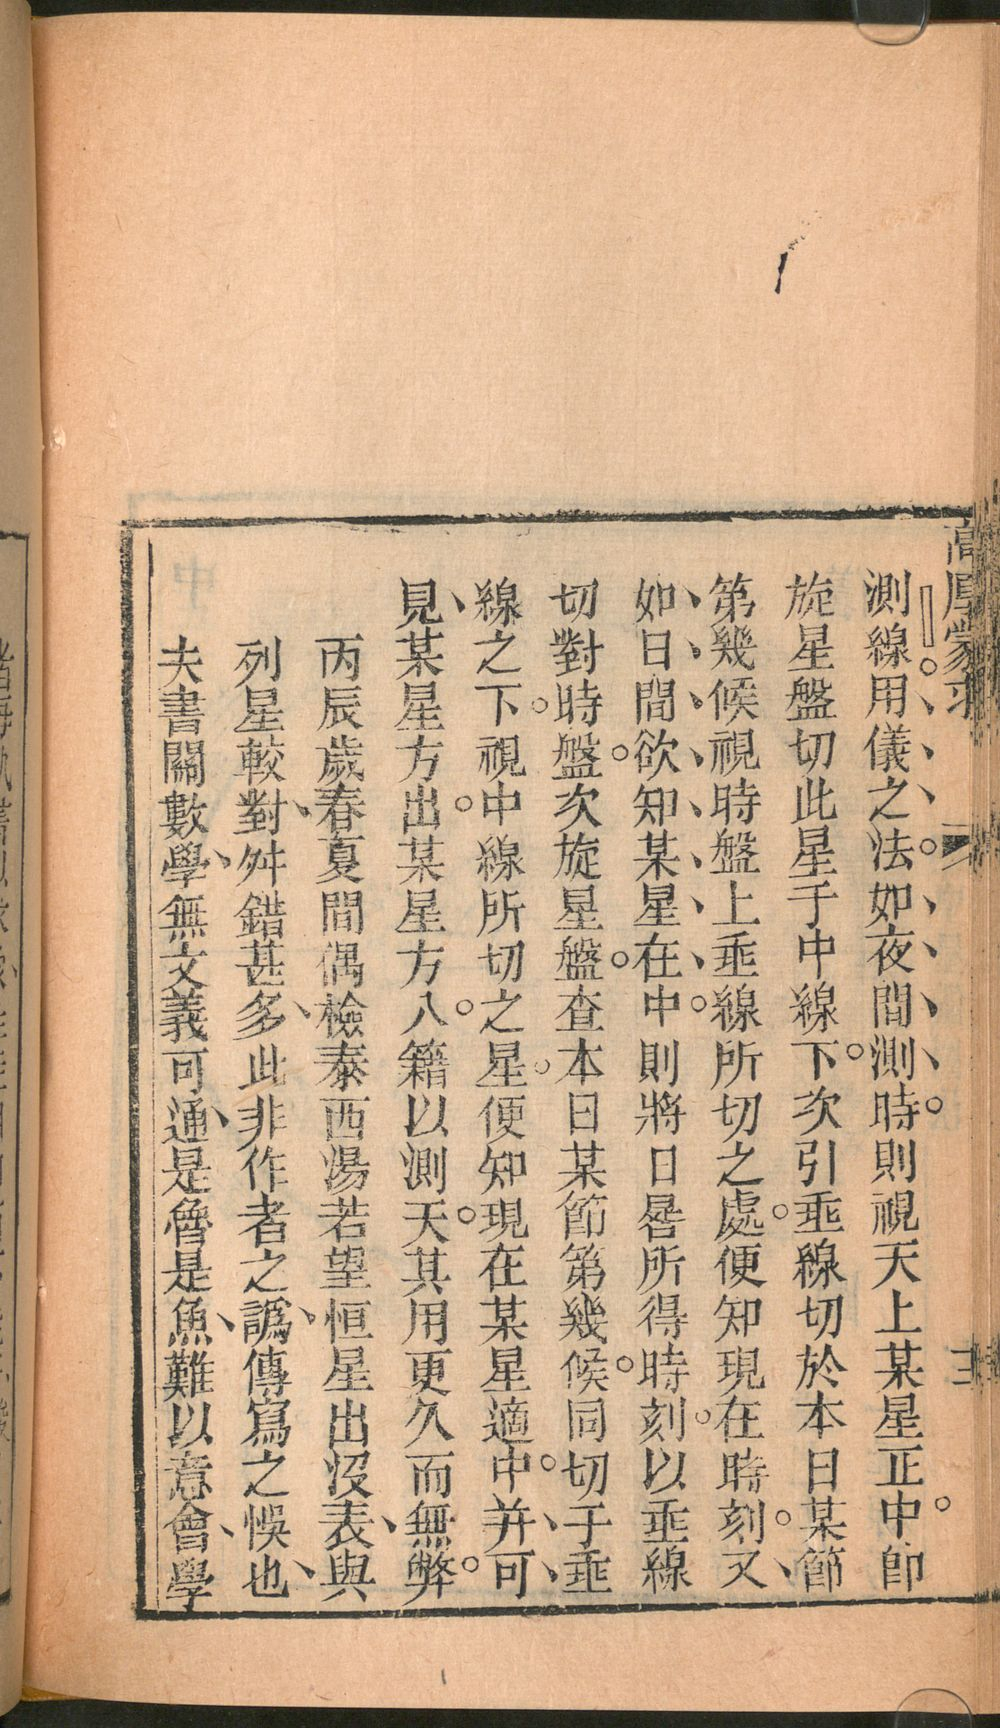 高厚蒙求
測線用儀之法如夜間測時則視天上某星正中卽
旋星盤切此星于中線下次引垂線切於本日某節
第幾候視時盤上垂線所切之處便知現在時刻又
如日間欲知某星在中則將日晷所得時刻以垂線
切對時盤次旋星盤查本日某節第幾候同切于垂
線之下視中線所切之星便知現在某星適中并可
見某星方出某星方入籍以測天其用更久而無弊
丙辰歲春夏間偶檢泰西湯若望恒星出沒表與
列星較對舛錯甚多此非作者之譌傳寫之悞也
夫書關數學無文義可通是魯是魚難以意會學
三